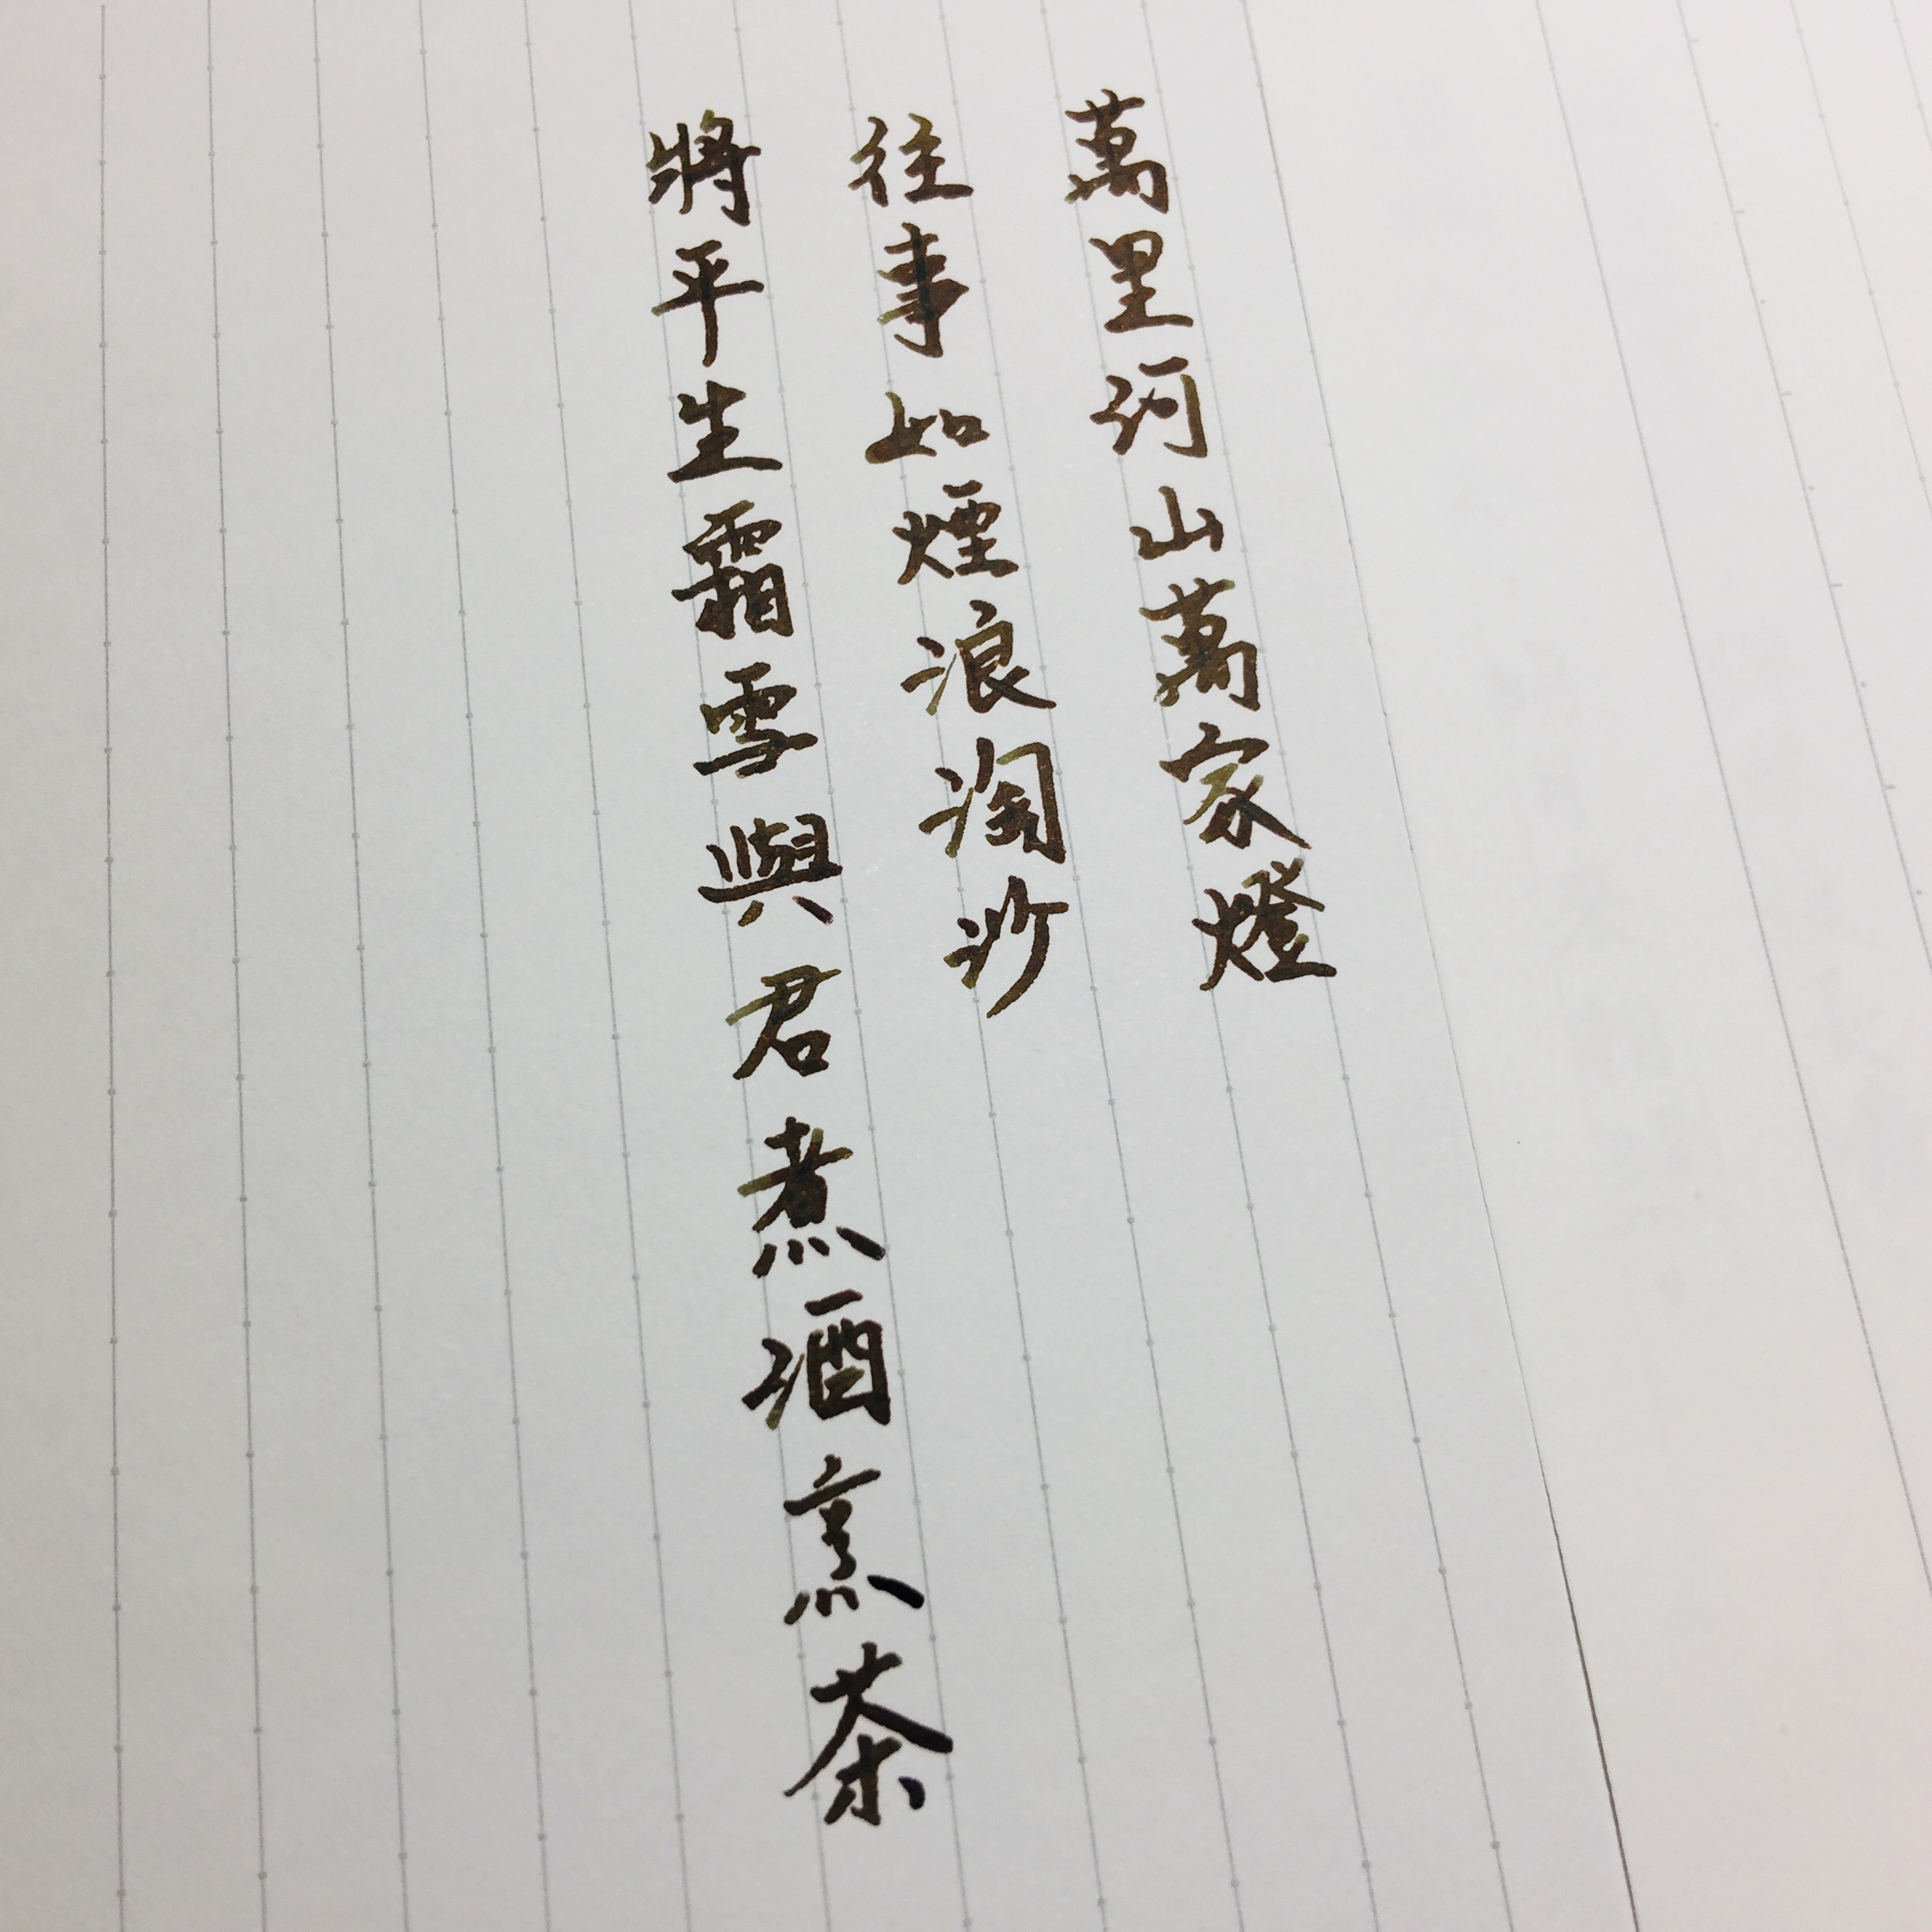 萬里河山萬家燈
往事如煙浪淘沙
將平生霜雪與君煮酒烹茶